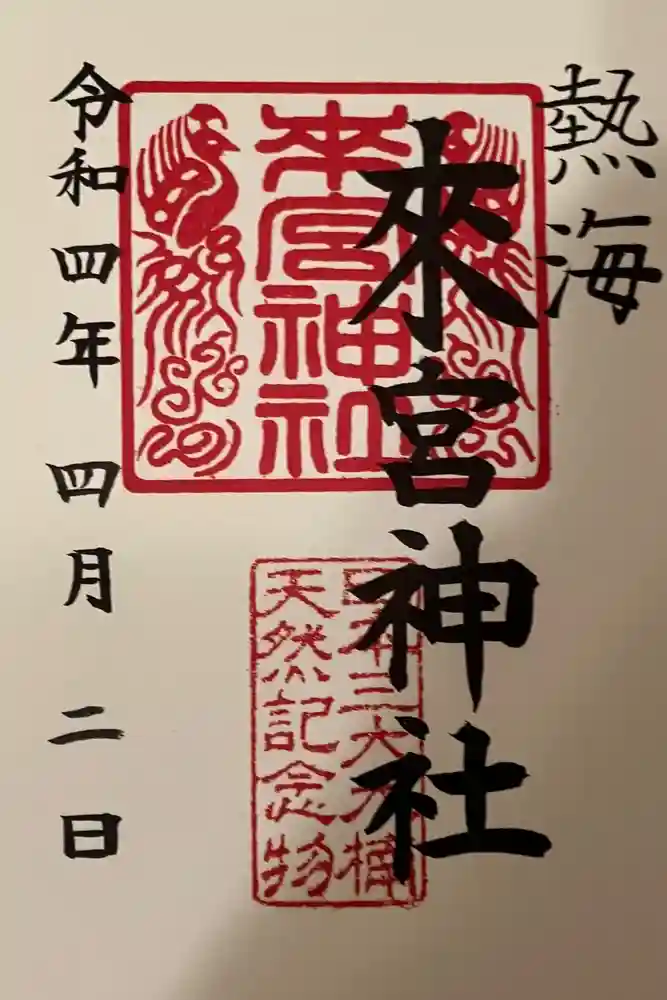 熱海
來宮神社
来宮神社
日本三大大楠
天然記念物
令和四年 四月 二日